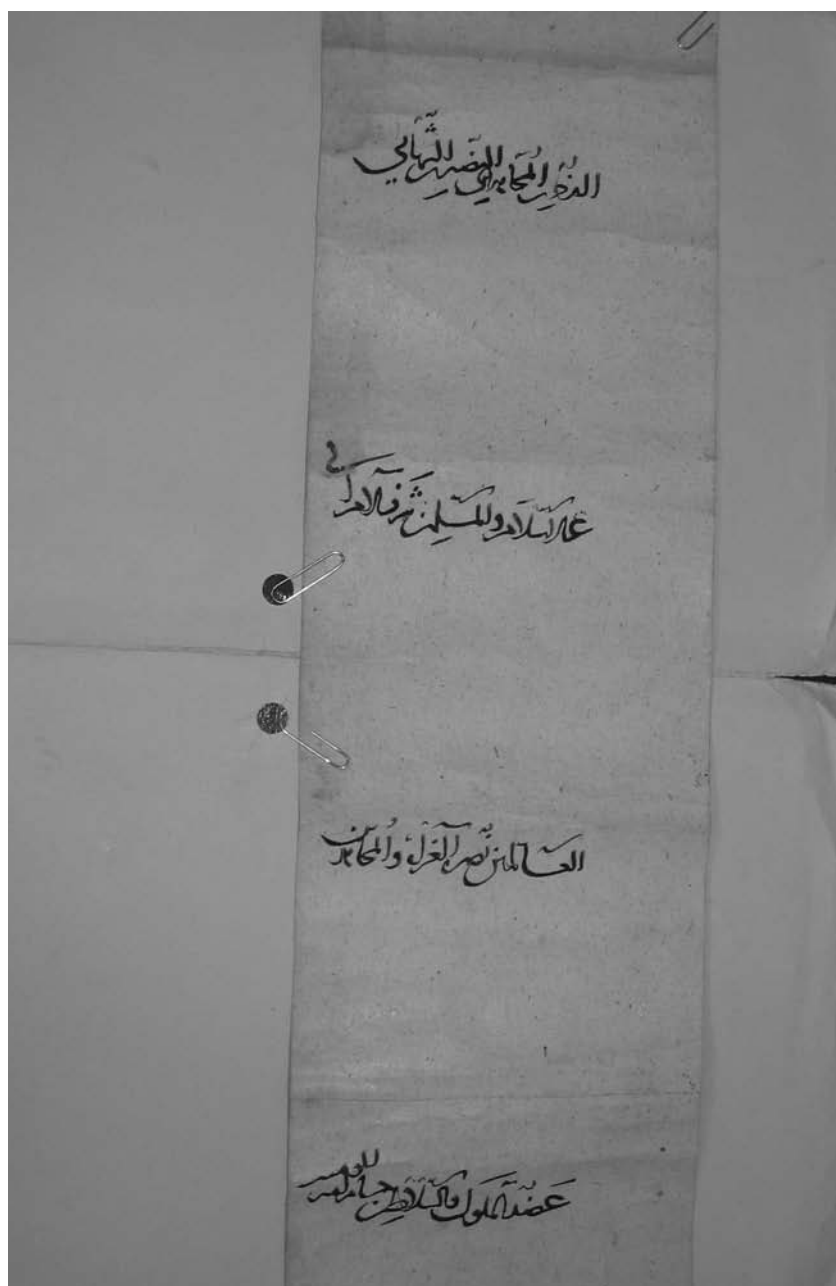 الذُخرِي المُجاهدي النصيري الشهابي
عز الاسلام والمسلمين شرف الامرا في
العالمين نصرة الغزاة والمجاهدين
عضد الملوك والسلاطين